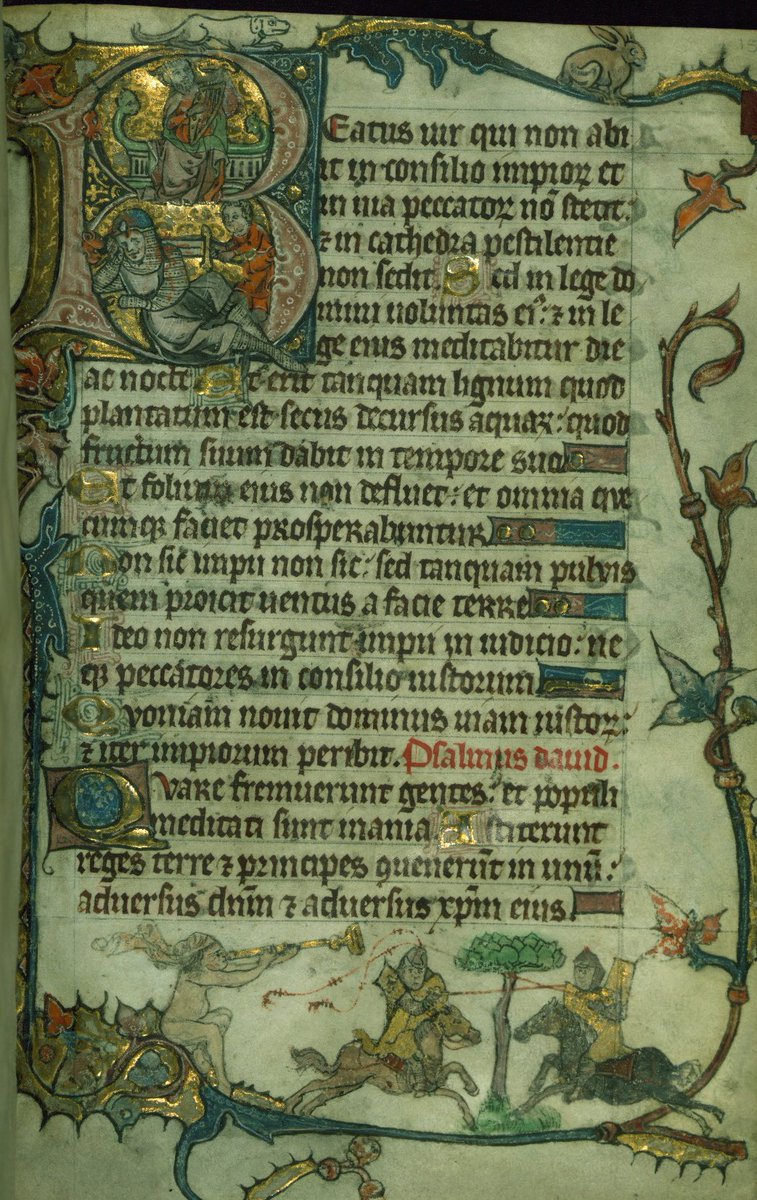 Beatus uir qui non abi
it in consilio impioꝝ et
in uia peccatoꝝ nō stetit.
⁊ in cathedra pestilentie
non sedit. Sed in lege do
mini uoluntas eiꝰ: ⁊ in le
ge eius meditabitur die
ac nocte Et erit tanquam lignum quod
plantatum est secus decursus aquaꝝ: quod
fructum suum dabit in tempore suo
Et folium eius non defluet: et omnia que
cumqꝫ faciet prosperabuntur
Non sic̄ impii non sic: sed tanquam puluis
quem proicit uentus a facie terre
Ideo non resurgunt impii in iudicio: ne
qꝫ peccatores in consilio iustorum
Quoniam nouit dominus uiam iustoꝝ:
⁊ iter impiorum peribit. Psalmus dauid.
Quare fremuerunt gentes: et populi
meditati sunt inania Astiterunt
reges terre ⁊ principes quenerūt in unū:
aduersus dn̄m ⁊ aduersus xp̄m eius.